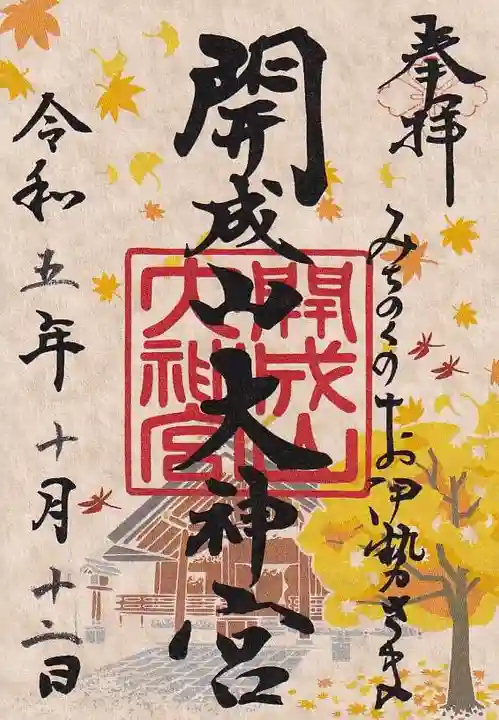 奉拝
みちのくのお伊勢さま
開成山大神宮
開成山
大神宮
令和五年十月十二日